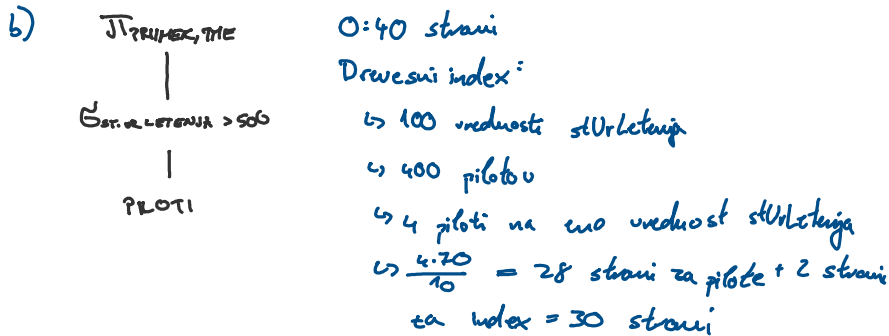 b)
π PRIIMEK, IME
σ ST.UR LETENJA > 500
PILOTI
O: 40 strani
Drevesni index:
↳ 100 vrednosti stUrLetenja
↳ 400 pilotov
↳ 4 piloti na eno vrednost stUrLetenja
↳ 4·70/10 = 28 strani za pilote + 2 strani
za index = 30 strani